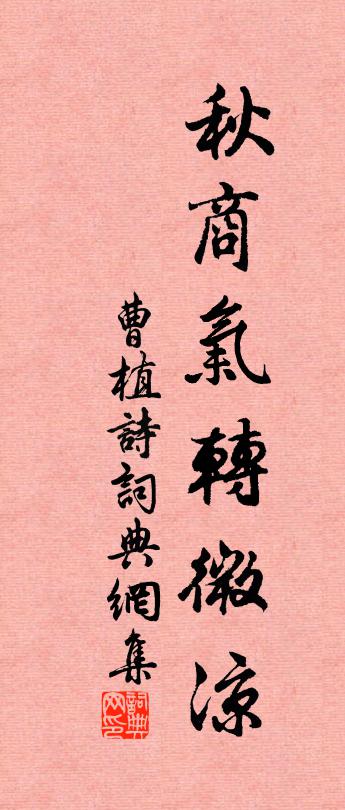 秋商氣轉微涼
曹植詩詞典網集
詞典網印